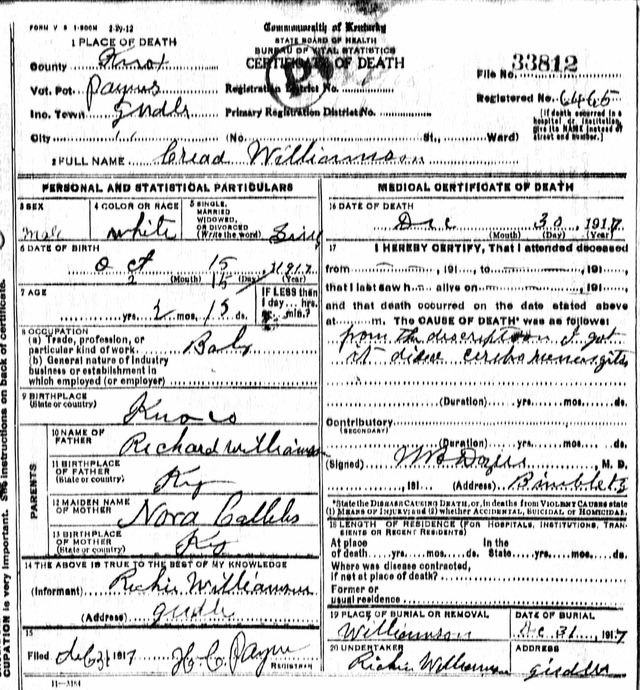 FORM V S 1-500M 2-29-12
Commonwealth of Kentucky
STATE BOARD OF HEALTH
BUREAU OF VITAL STATISTICS
CERTIFICATE OF DEATH
1 PLACE OF DEATH
County Knox
Vot. Pct. Paynes
Inc. Town Girdler
City
Registration District No.
Primary Registration District No.
(No. St., Ward)
File No. 33812
Registered No. 6465
[If death occurred in a
hospital or institution,
give its NAME instead of
street and number.]
2 FULL NAME Cread Williamson
PERSONAL AND STATISTICAL PARTICULARS
3 SEX
Male
4 COLOR OR RACE
white
5 SINGLE,
MARRIED
WIDOWED,
OR DIVORCED
(Write the word) Single
6 DATE OF BIRTH
Oct 15, 1917
(Month) (Day) (Year)
7 AGE
yrs. 2 mos. 15 ds.
IF LESS than
1 day... hrs.
or... min.?
8 OCCUPATION
(a) Trade, profession, or
particular kind of work Baby
(b) General nature of industry
business or establishment in
which employed (or employer)
9 BIRTHPLACE
(State or country) Knox co
PARENTS
10 NAME OF
FATHER Richard Williamson
11 BIRTHPLACE
OF FATHER
(State or country) Ky
12 MAIDEN NAME
OF MOTHER Nora
13 BIRTHPLACE
OF MOTHER
(State or country) Ky
14 THE ABOVE IS TRUE TO THE BEST OF MY KNOWLEDGE
(Informant) Richie Williamson
(Address) Girdler
15
Filed Dec 31 1917 H. C. Payne
REGISTRAR
11-3184
MEDICAL CERTIFICATE OF DEATH
16 DATE OF DEATH
Dec 30, 1917
(Month) (Day) (Year)
17 I HEREBY CERTIFY, That I attended deceased
from , 191 , to , 191 ,
that I last saw h alive on , 191 ,
and that death occurred on the date stated above
at m. The CAUSE OF DEATH* was as follows:
from the description I got
it
(Duration) yrs. mos. ds.
Contributory
(SECONDARY)
(Duration) yrs. mos. ds.
(Signed) M. D.
, 191 (Address)
*State the DISEASE CAUSING DEATH, or, in deaths from VIOLENT CAUSES state
(1) MEANS OF INJURY; and (2) whether ACCIDENTAL, SUICIDAL or HOMICIDAL.
18 LENGTH OF RESIDENCE (FOR HOSPITALS, INSTITUTIONS, TRANSIENTS OR RECENT RESIDENTS)
At place In the
of death yrs. mos. ds. State yrs. mos. ds.
Where was disease contracted,
if not at place of death?
Former or
usual residence
19 PLACE OF BURIAL OR REMOVAL
Williamson
DATE OF BURIAL
Dec 31, 1917
20 UNDERTAKER
Richie Williamson
ADDRESS
Girdler
CUPATION is very important. See instructions on back of certificate.